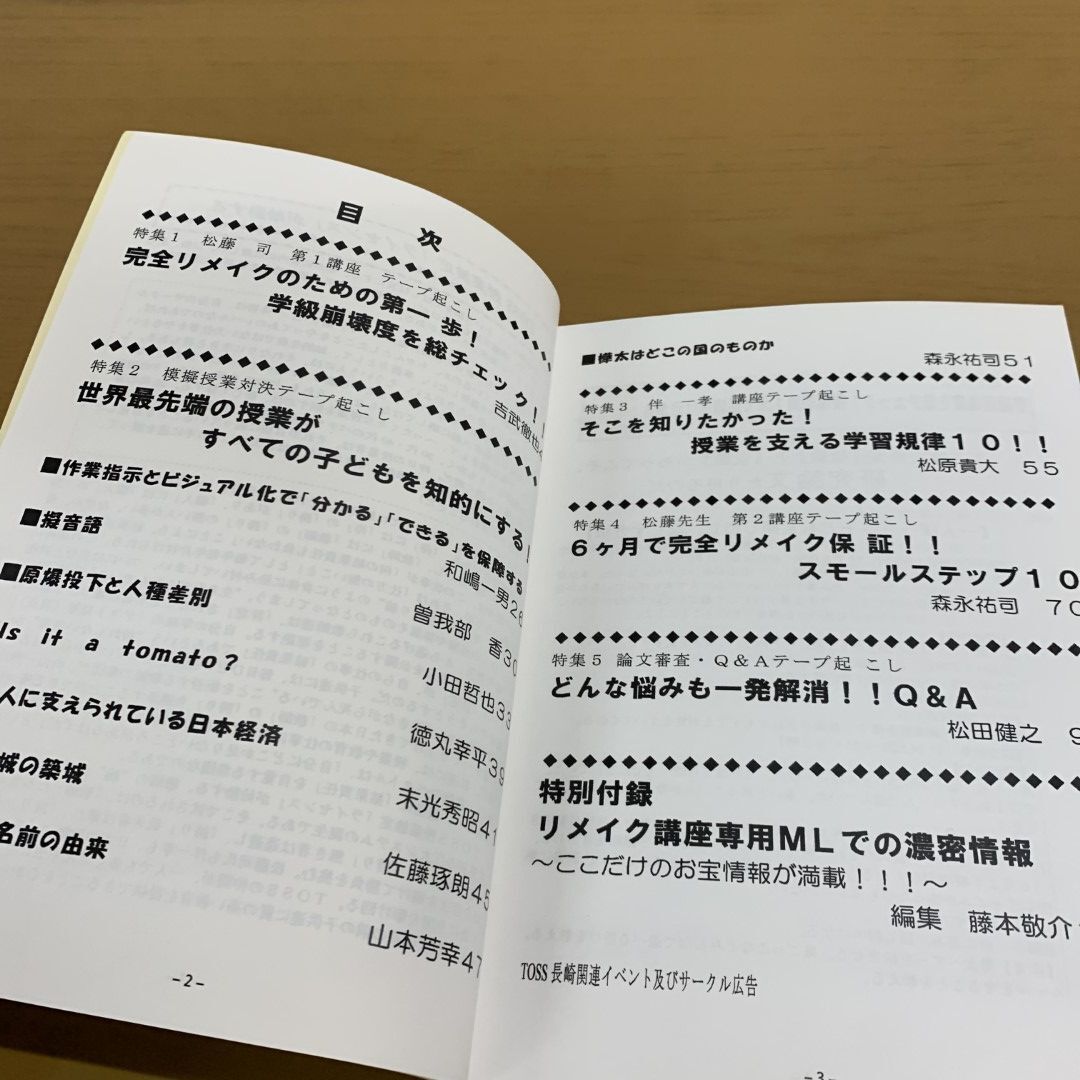 目次
特集1 松藤 司 第1講座 テープ起こし
完全リメイクのための第一 歩!
学級崩壊度を総チェック!!
吉武徹也
特集2 模擬授業対決テープ起こし
世界最先端の授業が
すべての子どもを知的にする!
■作業指示とビジュアル化で「分かる」「できる」を保障する
和嶋一男26
■擬音語
曽我部 香30
■原爆投下と人種差別
小田哲也33
Is it a tomato?
徳丸幸平39
人に支えられている日本経済
末光秀昭41
城の築城
佐藤琢朗45
名前の由来
山本芳幸47
-2-
■樺太はどこの国のものか
森永祐司51
特集3 伴 一孝 講座テープ起こし
そこを知りたかった!
授業を支える学習規律10!!
松原貴大 55
特集4 松藤先生 第2講座テープ起こし
6ヶ月で完全リメイク保 証!!
スモールステップ10
森永祐司 70
特集5 論文審査・Q&Aテープ起 こし
どんな悩みも一発解消!!Q&A
松田健之 9
特別付録
リメイク講座専用MLでの濃密情報
~ここだけのお宝情報が満載!!!~
編集 藤本敬介
TOSS長崎関連イベント及びサークル広告
-3-